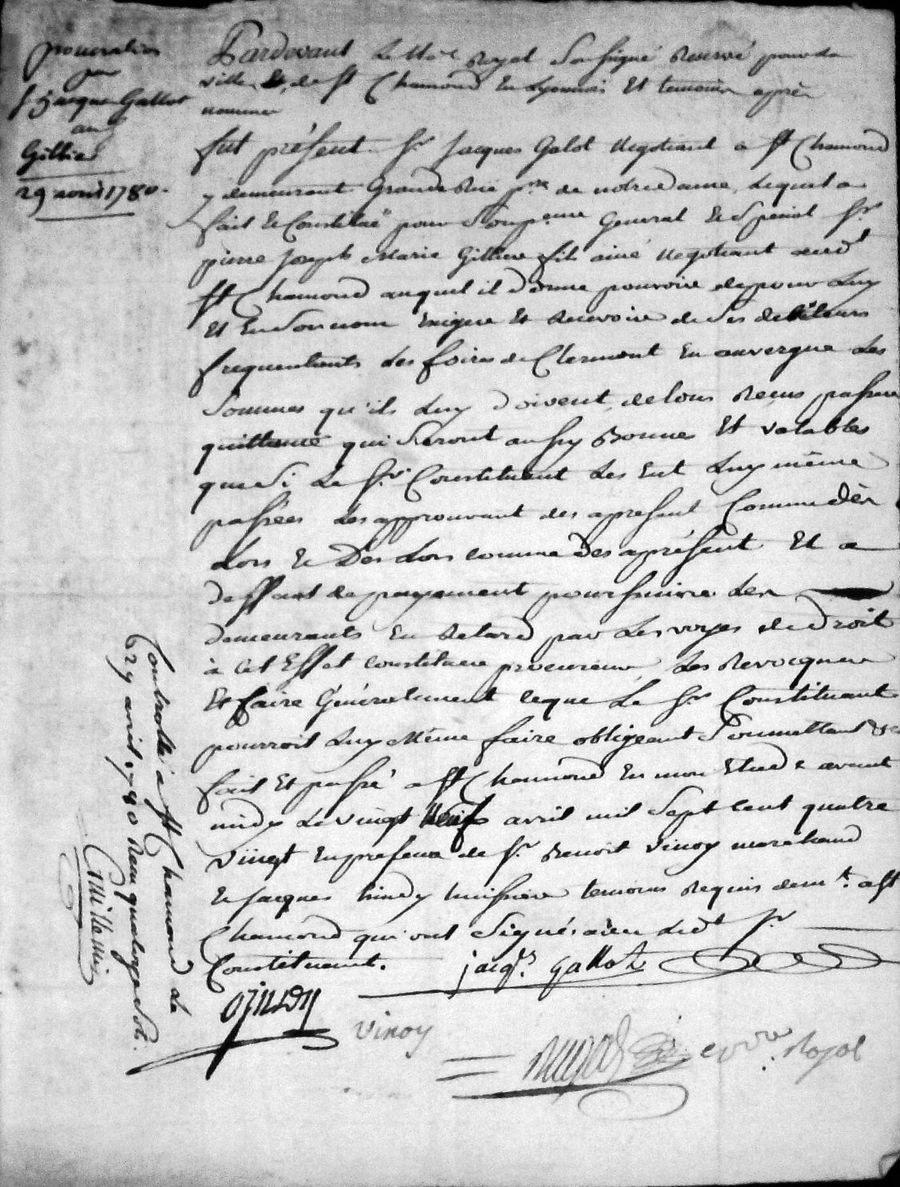 procuration
par
sr jacque Gallot
au sr
Gillier
29 avril 1780.
Pardevant Le Nore Royal Soussigné Reservé pour la
ville &, de st Chamond En Lyonnois Et temoins après
nommés
fut présent Sr. Jacques Galot Negotiant a st Chamond
y demeurant Grande Rüe psse de notre dame, Lequel a
fait Et Constitüé pour Son pcureur General Et Special Sr.
pierre Joseph Marie Gillier fils ainé Negotiant audt
st Chamond auquel il donne pouvoire de pour Luy
Et En Son nom Exiger Et Recevoire de Ses debiteurs
frequentants Les foires de Clermont En auvergne Les
Sommes qu'ils Luy doivent, de tous Reçus, passer
quittance qui Seront aussy Bonnes Et valables
que Si Le Sr. Constituant Les Eut Luy même
passées Les approuvant des apresent Comme dès
Lors Et Des Lors comme Des aprésent Et a
deffaut de payement poursuivre Les
demeurants En Retard par Les voyes de droit
à cet Effet constituer procureur, Les Revocquer
Et faire Généralement ceque Le Sr. Constituant
pourroit Luy Même faire obligeant Soumettant &c
fait Et passé a st Chamond En mon Etude avant
midy Le vingt Neuf avril mil Sept Cent quatre
vingt En presence de Sr. Benoit vinoy marchand
Et Jacques huissier temoins Requis demt. a st
Chamond qui ont Signé avec Ledt Sr
Constituant.
jacqs. Gallot
vinoy
Royal
Controllé a st Chamond Le
29 avril 1780 Reçu quatorze Sols.
Guillemin